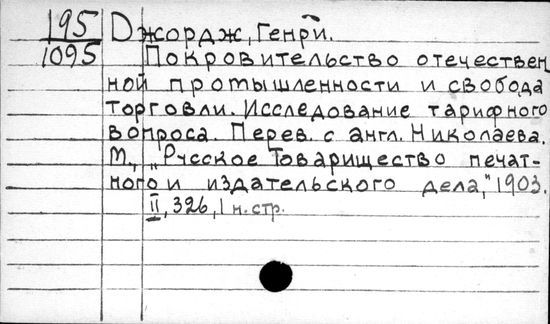 195 Джордж, Генри.
1095 Покровительство отечествен
ной промышленности и свобода
торговли. Исследование тарифного
вопроса. Перев. с англ. Николаева.
М., „Русское Товарищество печат-
ного и издательского дела," 1903.
II, 326, 1 н. стр.